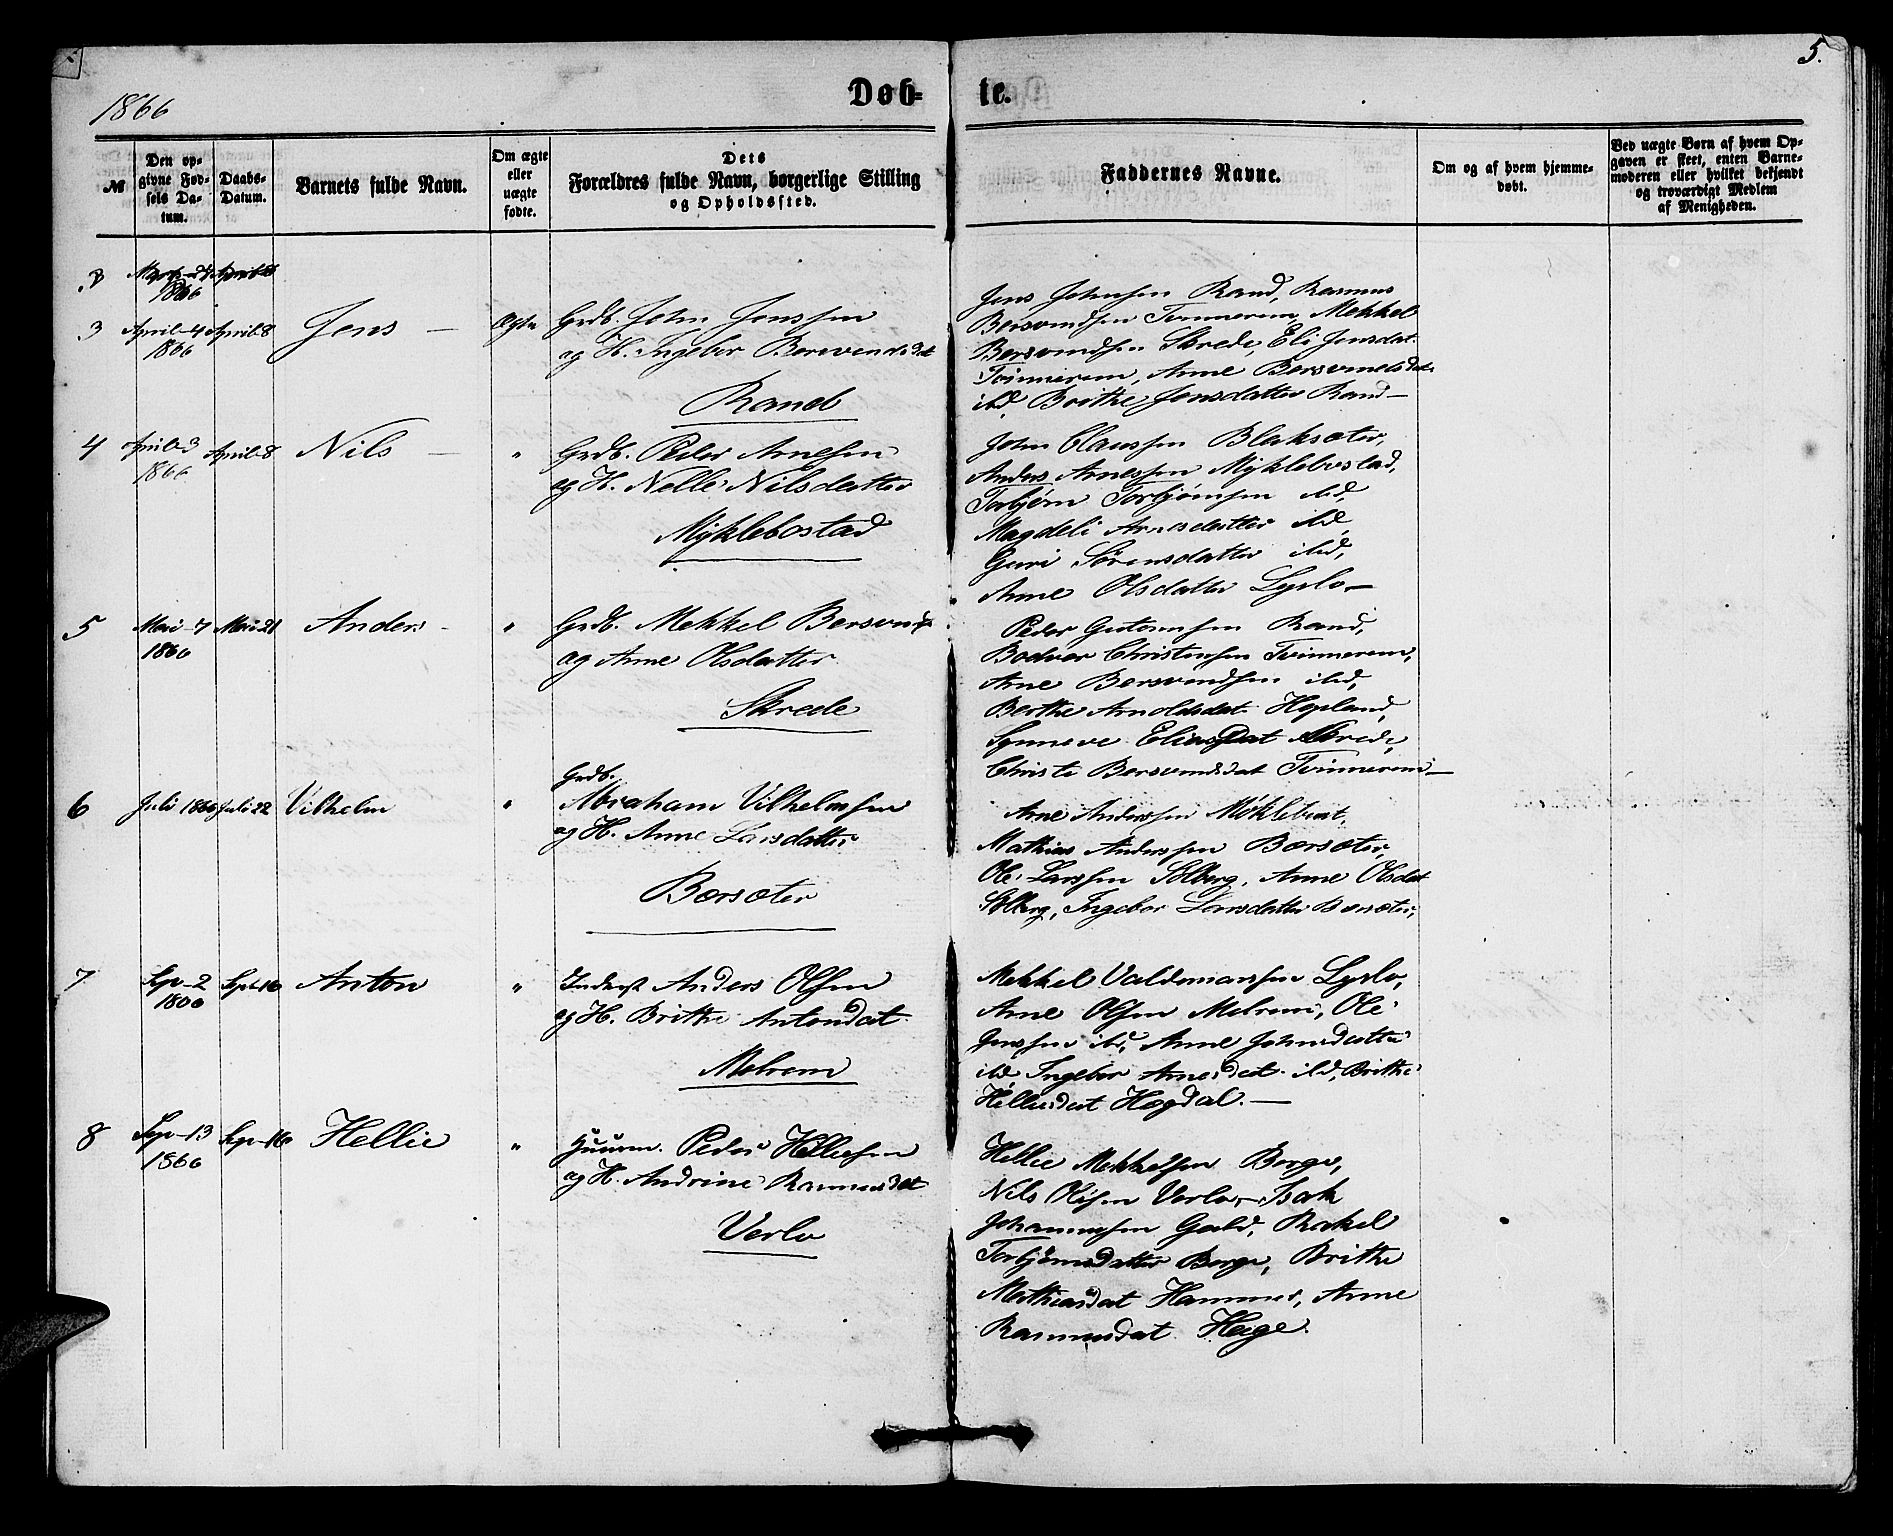 5.
1866
Døb- te.
№
Den op-
givne Fød-
sels Da-
tum.
Daabs-
Datum.
Barnets fulde Navn.
Om ægte
eller
uægte
fødte.
Dets
Forældres fulde Navn, borgerlige Stilling
og Opholdssted.
Faddernes Navne.
Om og af hvem hjemme-
døbt.
Ved uægte Børn af hvem Op-
gaven er skeet, enten Barne-
moderen eller hvilket bekjendt
og troværdigt Medlem
af Menigheden.
1866
3
April 4
1866
April 8
Jens —
Ægte
Grdb. John Jenssen
og H. Ingebor Bersvendsdat
Rand
Jens Johnsen Rand, Rasmus
Bersvendsen Tvinnerem, Mekkel
Bersvendsen Skrede, Eli Jensdat.
Tvinnerem, Anne Bersvendsdat.
ibd. Brithe Jensdatter Rand —
4
April 3
1866
April 8
Nils —
"
Grdb. Peder Arnesen
og H. Nelle Nilsdatter
Myklebostad
John Claussen Blaksæter,
Anders Arnessen Myklebostad,
Torbjørn Torbjørnsen ibd,
Magdeli Arnesdatter ibd,
Guri Sørensdatter ibd,
Anne Olsdatter Lyslo —
5
Mai 7
1866
Mai 21
Anders -
"
Grdb. Mekkel Bersvends
og Anne Olsdatter
Skrede
Peder Gutormsen Rand,
Bodvar Christensen Tvinnerem,
Arne Bersvendsen ibd,
Berthe Arnoldsdat. Hopland,
Synneve Eliasdat Skrede,
Christi Bersvendsdat Tvinnerem —
6
Juli 1866
Juli 22
Vilhelm
"
Grdb.
Abraham Vilhelmsen
og H. Anne Larsdatter
Børsæter
Arne Anderssen Møklebust,
Mathias Anderssen Børsæter,
Ole Larssen Solberg, Anne Olsdat
Solberg, Ingebor Larsdatter Børsæter,
7
Sep 2
1866
Sept 16
Anton
"
Inderst Anders Olsen
og H. Brithe Antondat.
Melrem
Mekkel Valdemarssen Lyslo,
Arne Olsen Melrem, Ole
Jenssen ibd, Anne Johnsdatter
ibd Ingebor Arnesdat. ibd, Brithe
Helliesdat Hogdal. —
8
Sep 13
1866
Sep 16
Hellie
"
Huusm. Peder Helliesen
og H. Andrine Rasmusdat
Verlo
Hellie Mekkelsen Berge,
Nils Olsen Verlo, Isak
Johannessen Gald, Rakel
Torbjørnsdatter Berge, Brithe
Mathiasdat Hammer, Anne
Rasmusdat Hage.